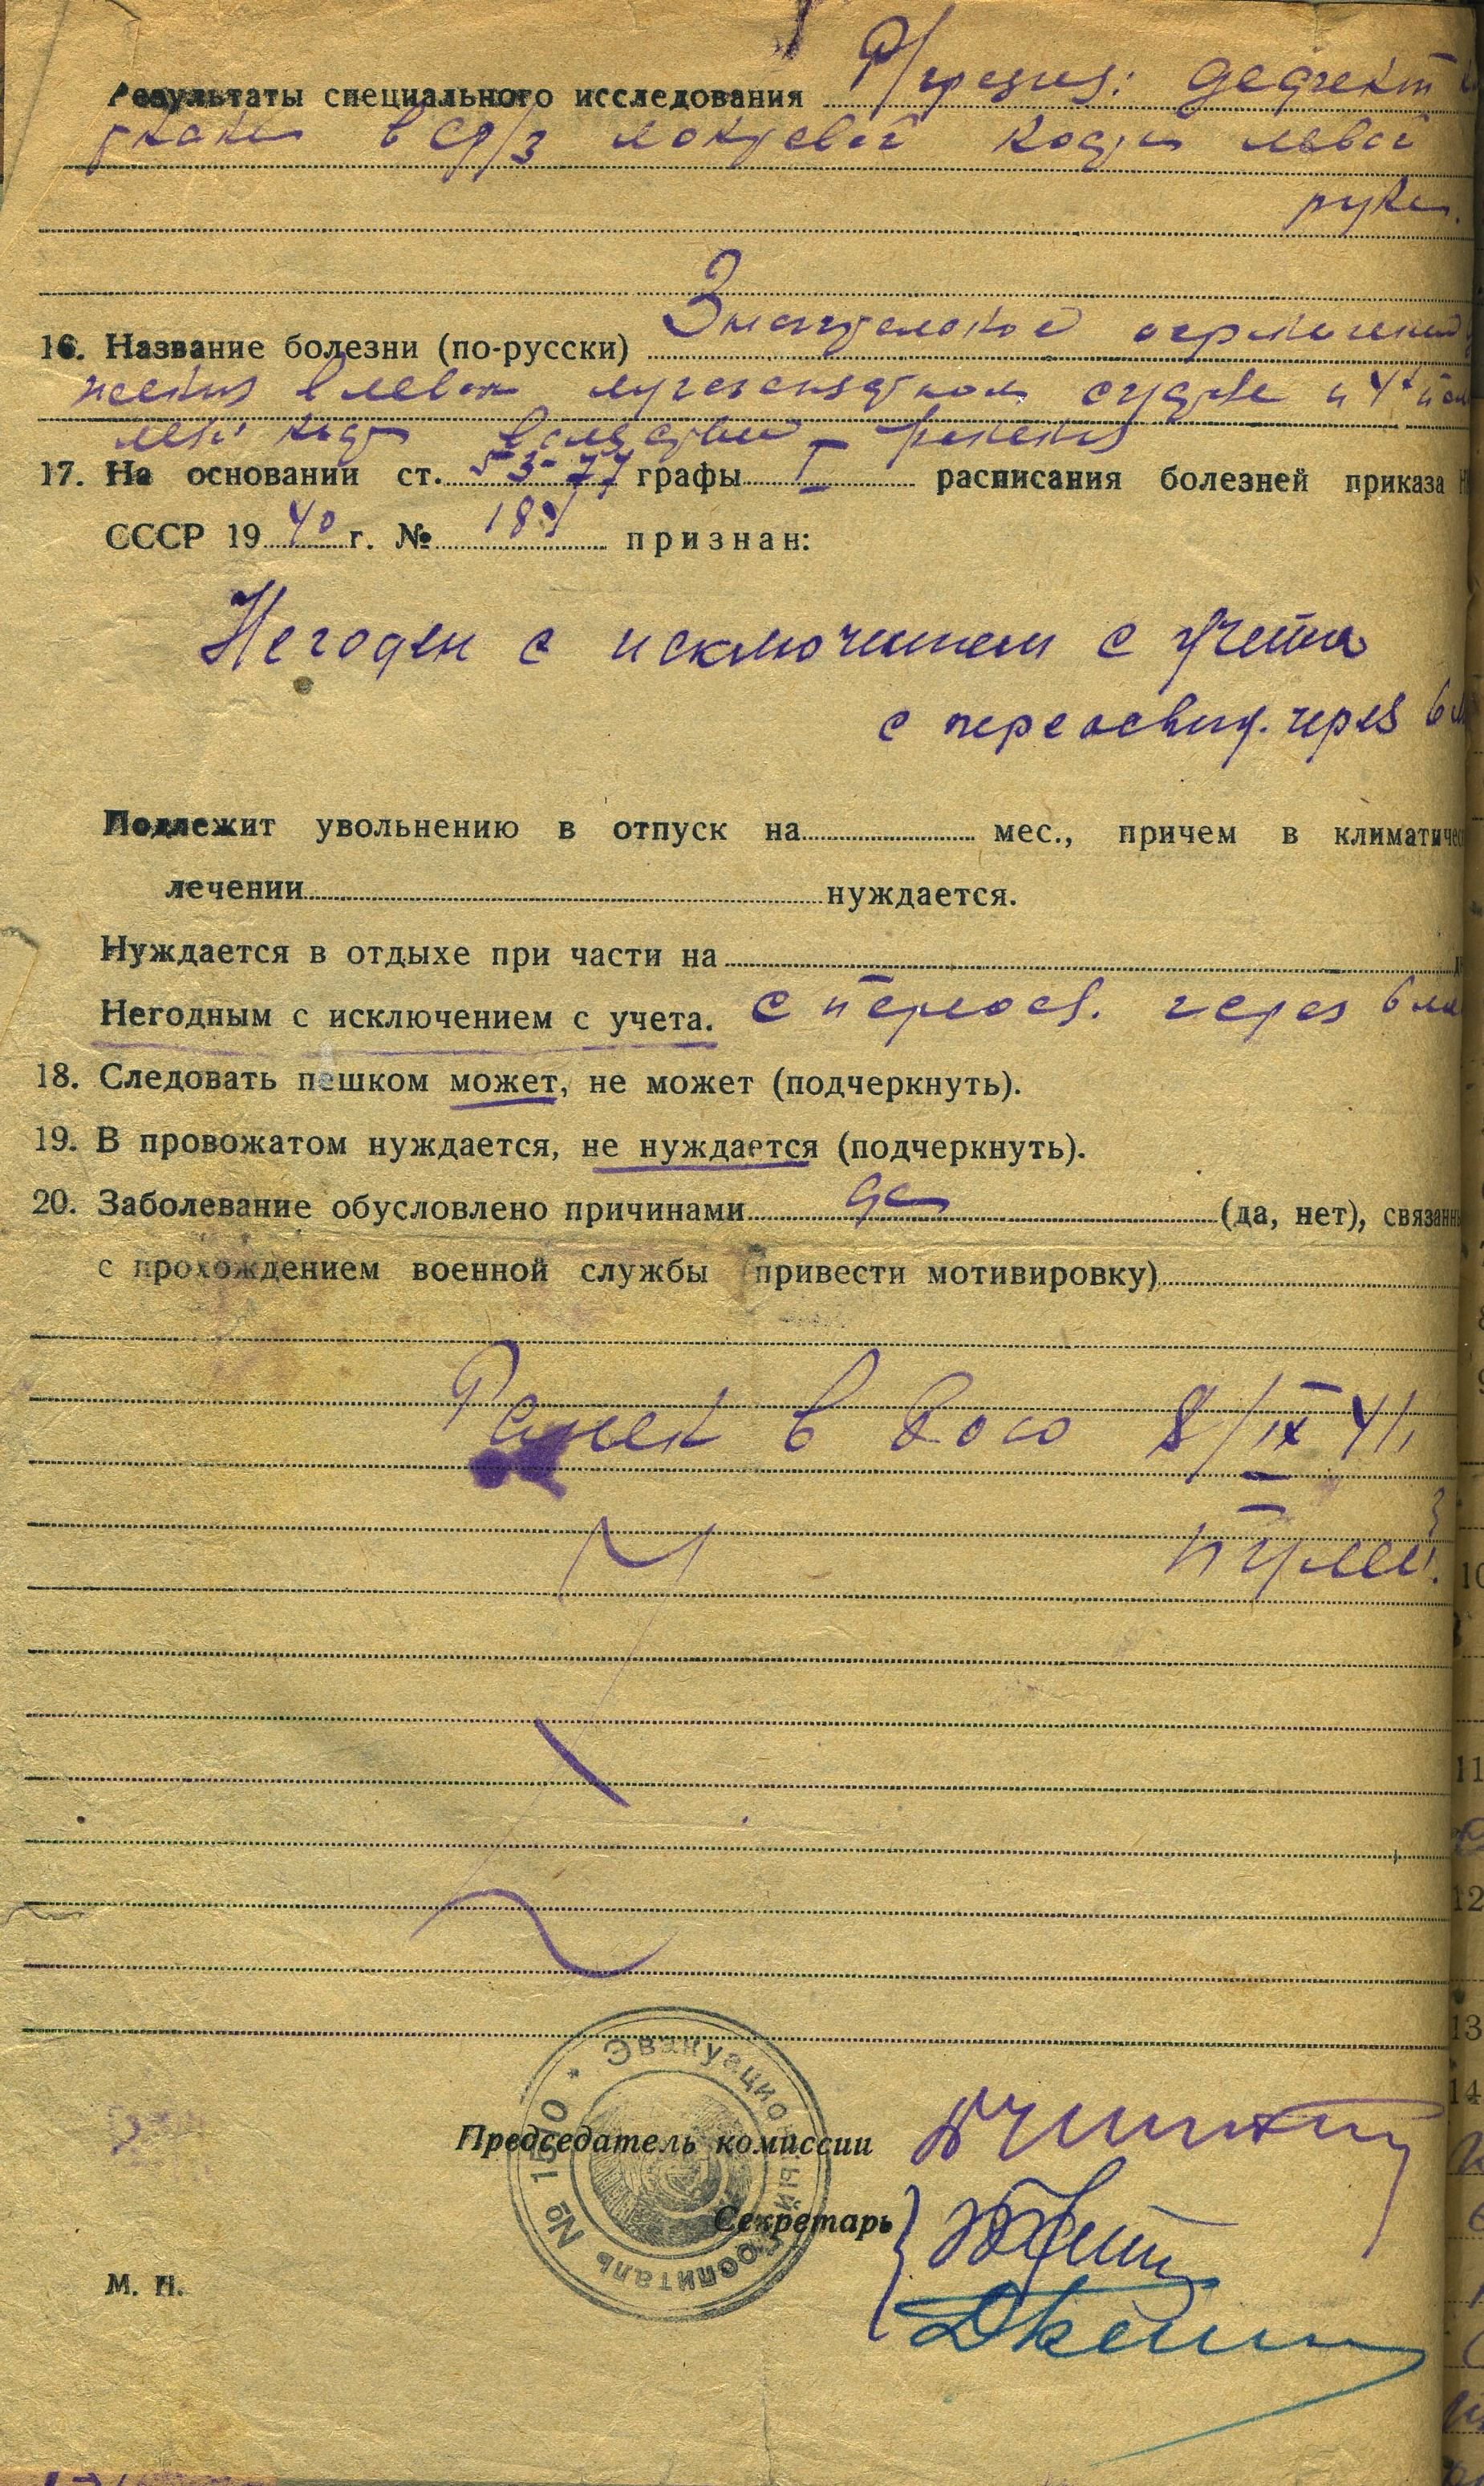 Результаты специального исследования Р/графия: дефект
ткани в ср/з локтевой кости левой
руки.
16. Название болезни (по-русски) Значительное ограничение
жения в левом лучезапястном суставе и 4х
лев. вследствие ранения
17. На основании ст. 53-77, графы I расписания болезней приказа Н
СССР 1940 г. № 184 признан:
Негоден с исключением с учета
с переосвид. через 6 м
Подлежит увольнению в отпуск на мес., причем в климатичес
лечении нуждается.
Нуждается в отдыхе при части на
Негодным с исключением с учета. с переосв. через 6 ме
18. Следовать пешком может, не может (подчеркнуть).
19. В провожатом нуждается, не нуждается (подчеркнуть).
20. Заболевание обусловлено причинами да (да, нет), связанны
с прохождением военной службы (привести мотивировку)
Ранен в бою 8/IX 41,
пулей.
Эвакуационный госпиталь № 1580
Председатель комиссии
Секретарь
М. П.
10
11
12
13
14